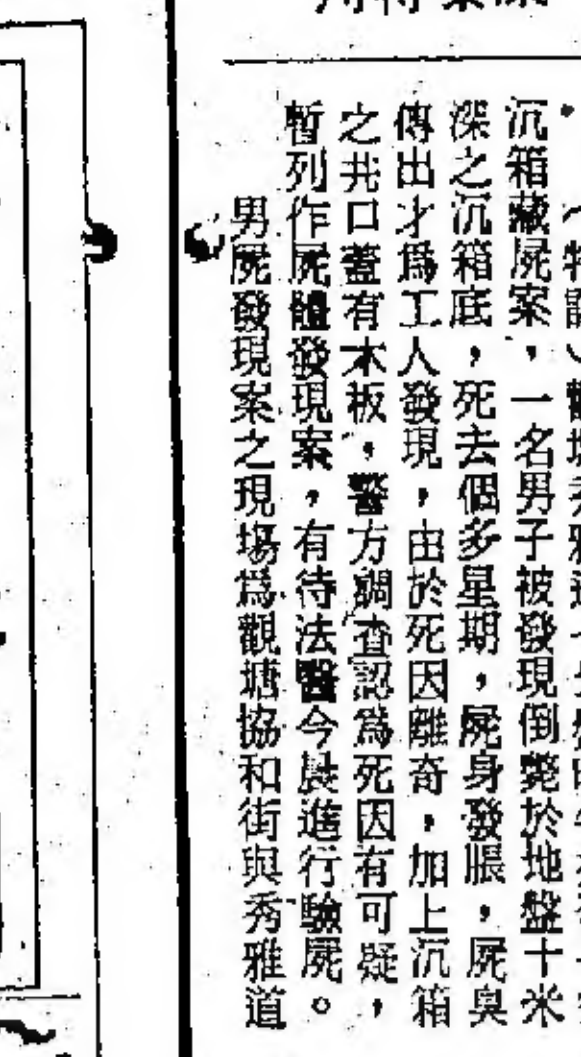 （特訊）觀塘秀雅道
沉箱藏屍案，一名男子被發現倒斃於地盤十米
深之沉箱底，死去個多星期，屍身發脹，屍臭
傳出才爲工人發現，由於死因離奇，加上沉箱
之井口蓋有木板，警方調查認爲死因有可疑，
暫列作屍體發現案，有待法醫今晨進行驗屍。
男屍發現案之現塲爲觀塘協和街與秀雅道